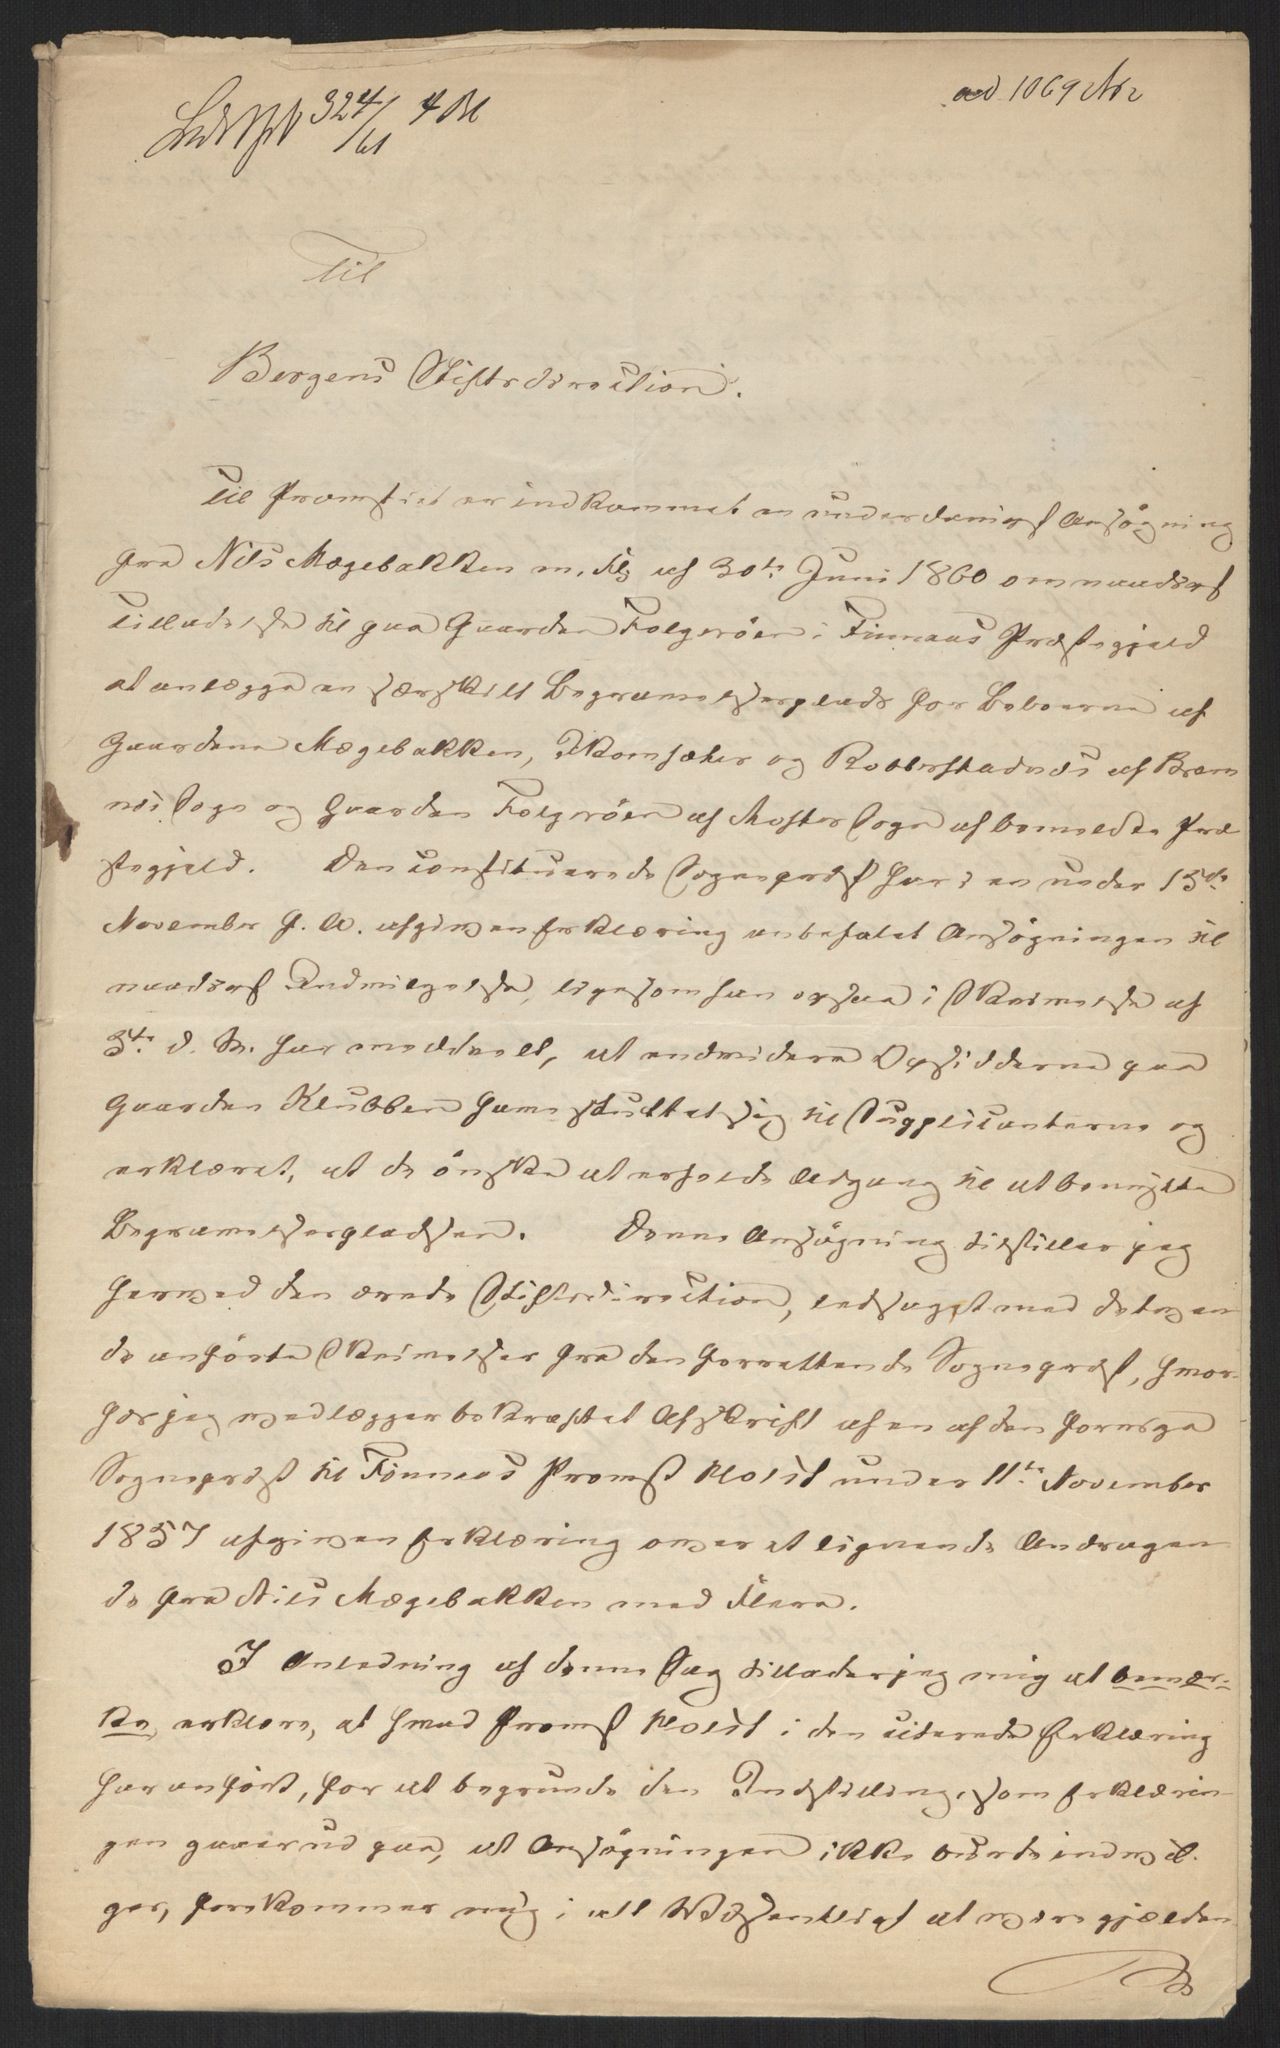 324/61 4 Bl
ad. 1069 No 2
Til
Bergens Stiftsdirection.
Til Provstiet er indkommet en underdanigst Ansøgning
fra Nils Mægebakken m. Fl. af 30te Juni 1860 om naadigst
Tilladelse til paa Gaarden Folgerøen i Finnaas Præstegjæld
at anlægge en særskilt Begravelsesplads for Beboerne af
Gaardene Mægebakken, Skomsæter og Robberstadnæs af Brem
næs Sogn og Gaarden Folgerøen af Moster Sogn af bemeldte Præ
stegjeld. Den constituerede Sognepræst har i en under 15de
November f. A. afgiven Erklæring anbefalet Ansøgningen til
naadigst Indvilgelse, ligesom han ogsaa i Skrivelse af
5te d. M. har meddeelt, at endvidere Opsidderne paa
Gaarden Klubben have sluttet sig til Supplicanterne og
erklæret, at de ønske at erholde Adgang til at benytte
Begravelsespladsen. Denne Ansøgning tilstiller jeg
herved den ærede Stiftsdirection, ledsaget med de tven
de anførte Skrivelser fra den forrettende Sognepræst, hvor-
hos jeg vedlægger bekræftet Afskrift af en af den forrige
Sognepræst til Finnaas Provst Holst under 11te November
1857 afgiven Erklæring over et lignende Andragen
de fra Nils Mægebakken med Flere.
I Anledning af denne Sag tillader jeg mig at bemær-
ke, erklære, at hvad Provst Holst i den citerede Erklæring
har anført, for at begrunde den Indstilling, som Erklærin
gen gaaer ud paa, at Ansøgningen ikke burde indvil-
ges, forekommer mig i alt Væsentligt at være gjælden
de